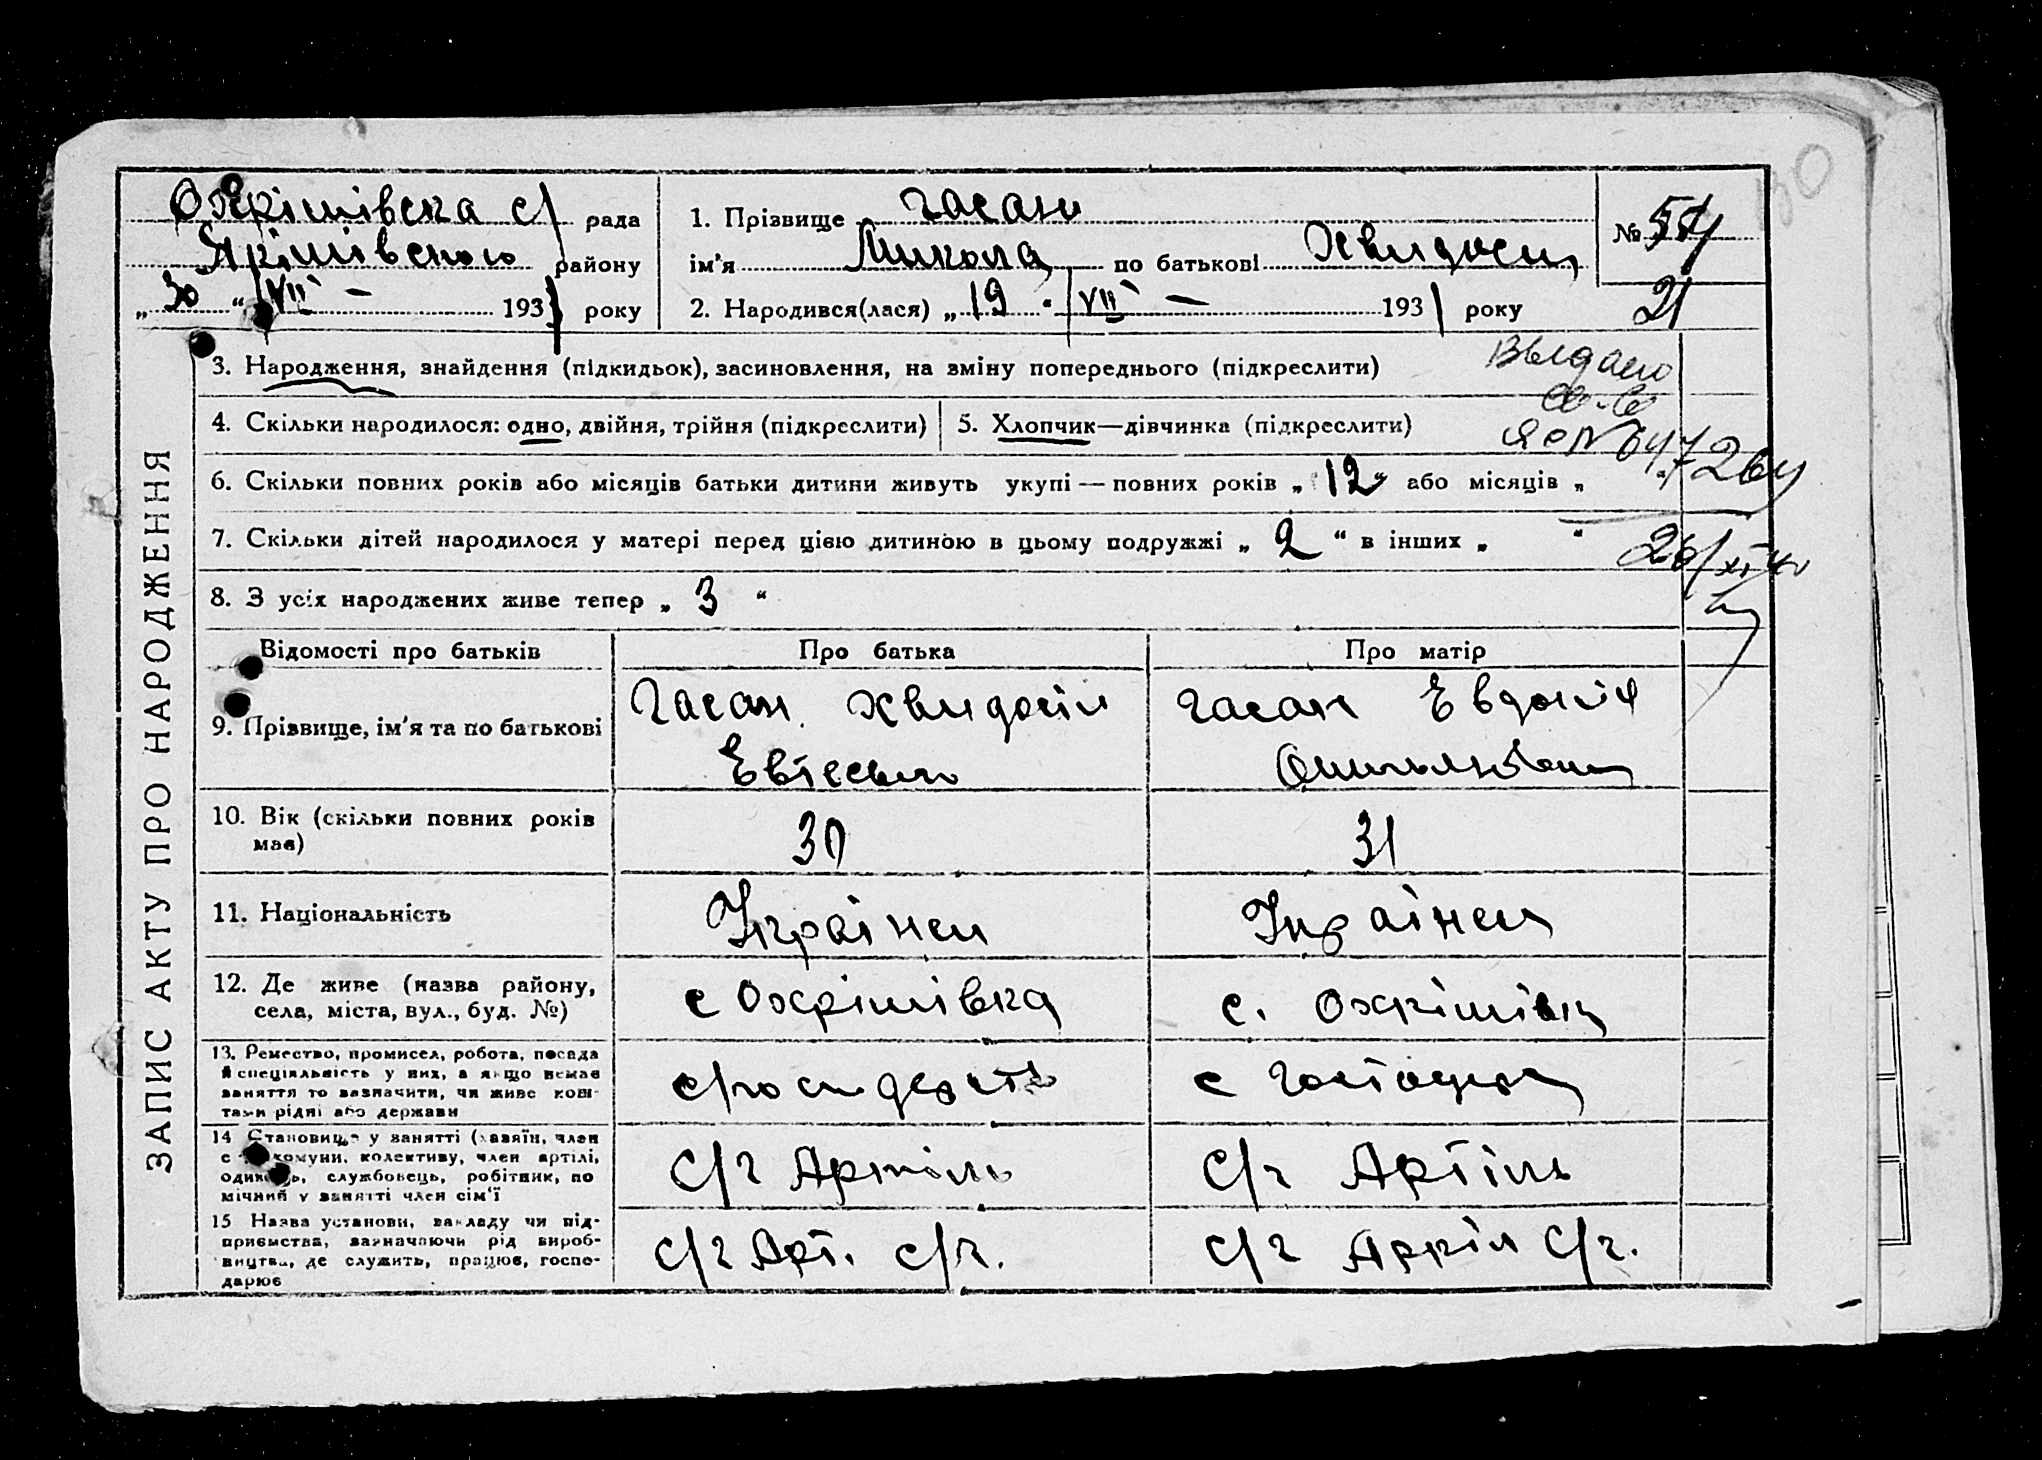 Охрімівска с/ рада
Якімівского району
„ 30 “ VII — 1931 року
1. Прізвище Гасан
ім'я Микола по батькові Хвидосій
2. Народився(лася) „ 19 “ VII — 1931 року
№ 54
21
ЗАПИС АКТУ ПРО НАРОДЖЕННЯ
3. Народження, знайдення (підкидьок), засиновлення, на зміну попереднього (підкреслити)
Выдано
св-во
4. Скільки народилося: одно, двійня, трійня (підкреслити)
5. Хлопчик—дівчинка (підкреслити)
6. Скільки повних років або місяців батьки дитини живуть укупі — повних років „ 12 “ або місяців „ “
7. Скільки дітей народилося у матері перед цією дитиною в цьому подружжі „ 2 “ в інших „ “
8. З усіх народжених живе тепер „ 3 “
Відомості про батьків
Про батька
Про матір
9. Прізвище, ім'я та по батькові
Гасан Хвидосій
Гасан Евдокія
10. Вік (скільки повних років має)
30
31
11. Національність
Українец
Українец
12. Де живе (назва району, села, міста, вул., буд. №)
с Охрімівка
с. Охрімівка
13. Ремество, промисел, робота, посада й спеціяльність у них, а якщо немає заняття то зазначити, чи живе коштами рідні або держави
14 Становище у занятті (хазяїн, член с.-г. комуни, колективу, член артілі, одинець, службовець, робітник, помічний у занятті член сім'ї
с/г Артіль
с/г Артіль
15 Назва установи, закладу чи підприємства, зазначаючи рід виробництва, де служить, працює, господарює
с/г Арт. с/г.
с/г Артіл с/г.